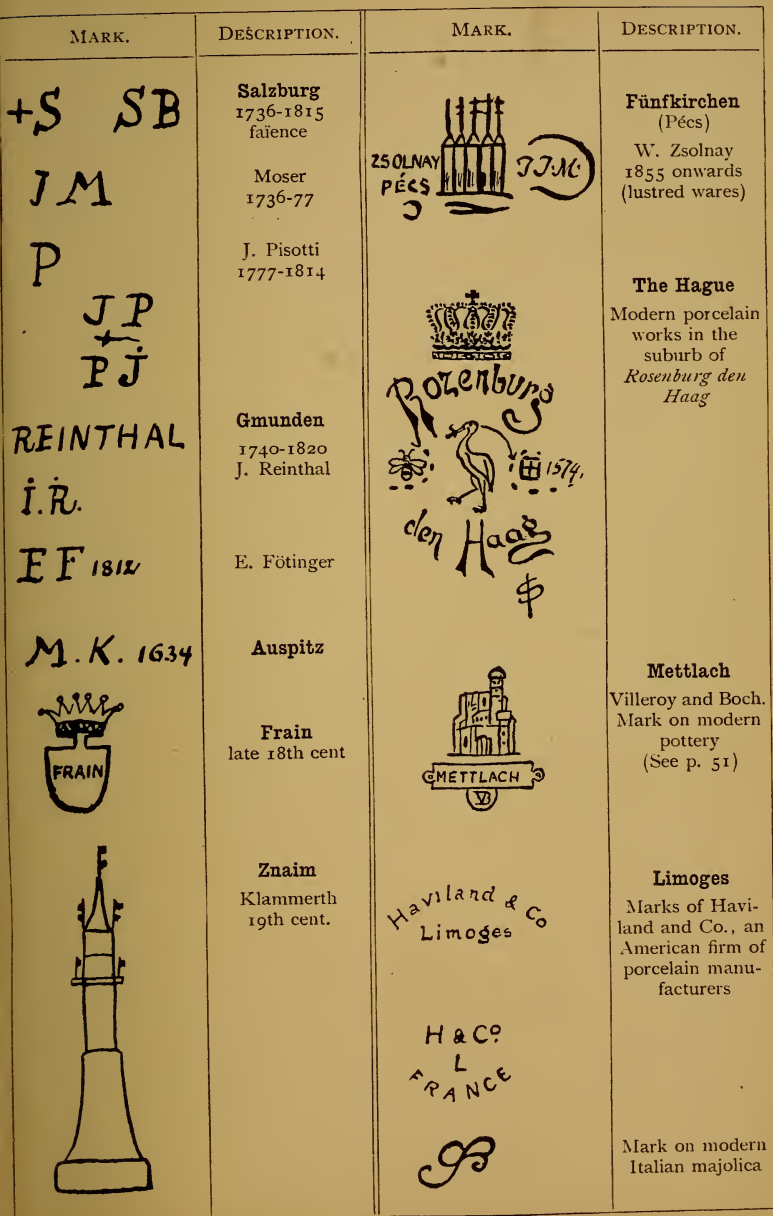 MARK.
DESCRIPTION.
+S SB
Salzburg
1736-1815
faïence
J M
Moser
1736-77
P
J. Pisotti
1777-1814
J P
P J
REINTHAL
I.R.
Gmunden
1740-1820
J. Reinthal
E F 1812
E. Fötinger
M.K. 1634
Auspitz
FRAIN
Frain
late 18th cent
Znaim
Klammerth
19th cent.
MARK.
DESCRIPTION.
ZSOLNAY
PÉCS
J.J.M.
Fünfkirchen
(Pécs)
W. Zsolnay
1855 onwards
(lustred wares)
Rozenburg
1574.
den Haag
The Hague
Modern porcelain
works in the
suburb of
Rosenburg den
Haag
METTLACH
VB
Mettlach
Villeroy and Boch.
Mark on modern
pottery
(See p. 51)
Haviland & Co
Limoges
H & Co.
L
FRANCE
Limoges
Marks of Havi-
land and Co., an
American firm of
porcelain manu-
facturers
Mark on modern
Italian majolica